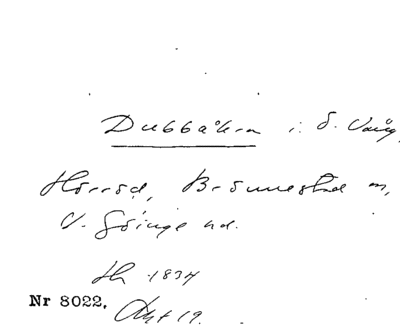 Dubbåkra i S. Vång,
Hörröd, Brönnestad sn,
V. Göinge hd.
Hh 1834
Nr 8022. Akt 19.